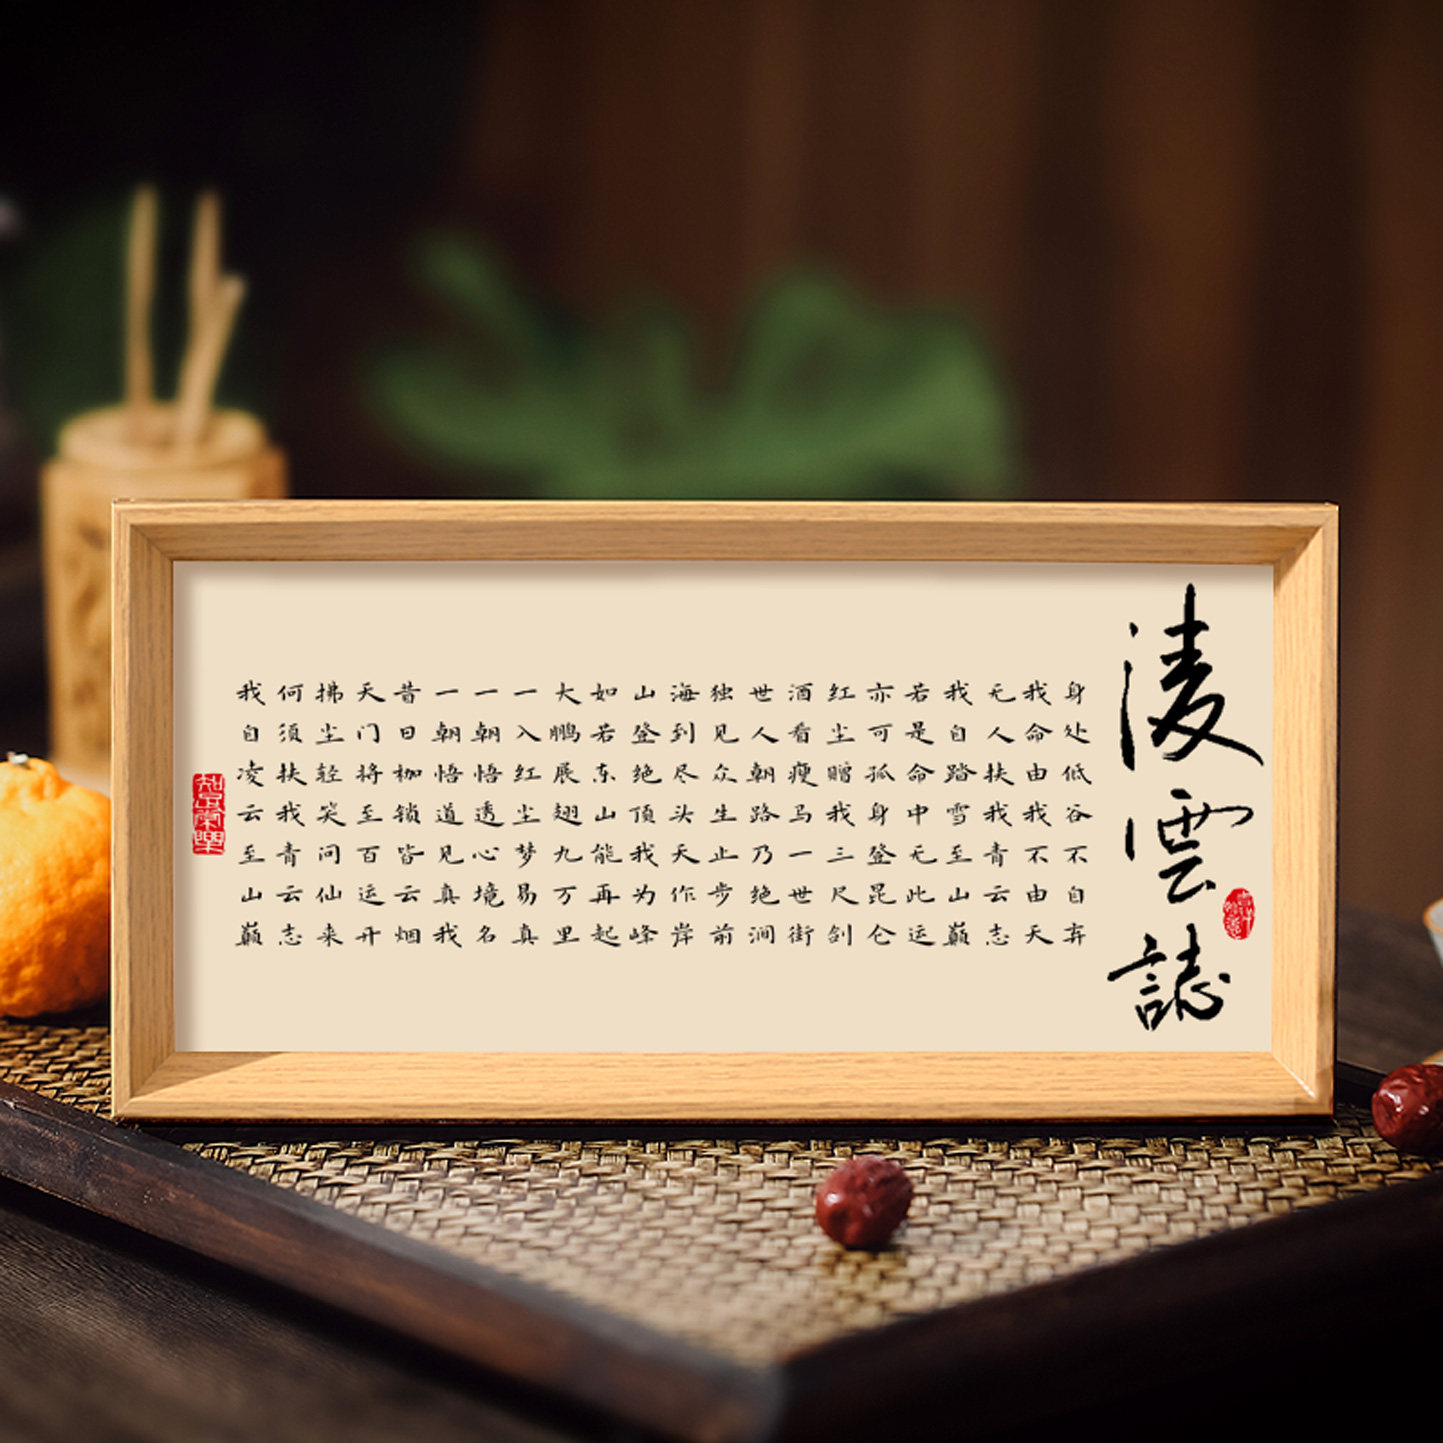 凌雲誌
身处低谷不自弃
我命由我不由天
无人扶我青云志
我自踏雪至山巅
若是命中无此运
亦可孤身登昆仑
红尘赠我三尺剑
酒看瘦马一世街
世人朝路乃绝涧
独见众生止步前
海到尽头天作岸
山登绝顶我为峰
如若东山能再起
大鹏展翅九万里
一入红尘梦易真
一朝悟透心境名
一朝悟道见真我
昔日枷锁皆云烟
天门将至百运开
拂尘轻笑问仙来
何须扶我青云志
我自凌云至山巅
知足常樂